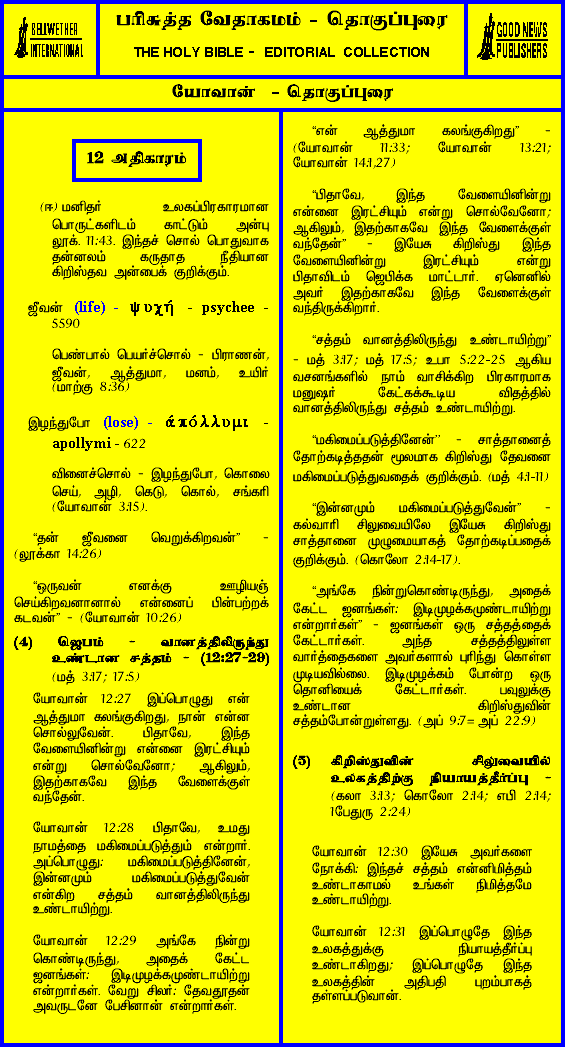 BELLWETHER
INTERNATIONAL
பரிசுத்த வேதாகமம் - தொகுப்புரை
THE HOLY BIBLE - EDITORIAL COLLECTION
GOOD NEWS
PUBLISHERS
யோவான் - தொகுப்புரை
12 அதிகாரம்
(ஈ) மனிதர் உலகப்பிரகாரமான
பொருட்களிடம் காட்டும் அன்பு
லூக். 11:43. இந்தச் சொல் பொதுவாக
தன்னலம் கருதாத நீதியான
கிறிஸ்தவ அன்பைக் குறிக்கும்.
ஜீவன் (life) - ψυχή - psychee -
5590
பெண்பால் பெயர்ச்சொல் - பிராணன்,
ஜீவன், ஆத்துமா, மனம், உயிர்
(மாற்கு 8:36)
இழந்துபோ (lose) - ἀπόλλυμι -
apollymi - 622
வினைச்சொல் - இழந்துபோ, கொலை
செய், அழி, கெடு, கொல், சங்கரி
(யோவான் 3:15).
“தன் ஜீவனை வெறுக்கிறவன்” -
(லூக்கா 14:26)
“ஒருவன் எனக்கு ஊழியஞ்
செய்கிறவனானால் என்னைப் பின்பற்றக்
கடவன்” - (யோவான் 10:26)
(4) ஜெபம் - வானத்திலிருந்து
உண்டான சத்தம் - (12:27-29)
(மத் 3:17; 17:5)
யோவான் 12:27 இப்பொழுது என்
ஆத்துமா கலங்குகிறது, நான் என்ன
சொல்லுவேன். பிதாவே, இந்த
வேளையினின்று என்னை இரட்சியும்
என்று சொல்வேனோ; ஆகிலும்,
இதற்காகவே இந்த வேளைக்குள்
வந்தேன்.
யோவான் 12:28 பிதாவே, உமது
நாமத்தை மகிமைப்படுத்தும் என்றார்.
அப்பொழுது: மகிமைப்படுத்தினேன்,
இன்னமும் மகிமைப்படுத்துவேன்
என்கிற சத்தம் வானத்திலிருந்து
உண்டாயிற்று.
யோவான் 12:29 அங்கே நின்று
கொண்டிருந்து, அதைக் கேட்ட
ஜனங்கள்: இடிமுழக்கமுண்டாயிற்று
என்றார்கள். வேறு சிலர்: தேவதூதன்
அவருடனே பேசினான் என்றார்கள்.
“என் ஆத்துமா கலங்குகிறது” -
(யோவான் 11:33; யோவான் 13:21;
யோவான் 14:1,27)
“பிதாவே, இந்த வேளையினின்று
என்னை இரட்சியும் என்று சொல்வேனோ;
ஆகிலும், இதற்காகவே இந்த வேளைக்குள்
வந்தேன்” - இயேசு கிறிஸ்து இந்த
வேளையினின்று இரட்சியும் என்று
பிதாவிடம் ஜெபிக்க மாட்டார். ஏனெனில்
அவர் இதற்காகவே இந்த வேளைக்குள்
வந்திருக்கிறார்.
“சத்தம் வானத்திலிருந்து உண்டாயிற்று”
- மத் 3:17; மத் 17:5; உபா 5:22-25 ஆகிய
வசனங்களில் நாம் வாசிக்கிற பிரகாரமாக
மனுஷர் கேட்கக்கூடிய விதத்தில்
வானத்திலிருந்து சத்தம் உண்டாயிற்று.
“மகிமைப்படுத்தினேன்” - சாத்தானைத்
தோற்கடித்ததன் மூலமாக கிறிஸ்து தேவனை
மகிமைப்படுத்துவதைக் குறிக்கும். (மத் 4:1-11)
“இன்னமும் மகிமைப்படுத்துவேன்” -
கல்வாரி சிலுவையிலே இயேசு கிறிஸ்து
சாத்தானை முழுமையாகத் தோற்கடிப்பதைக்
குறிக்கும். (கொலோ 2:14-17).
“அங்கே நின்றுகொண்டிருந்து, அதைக்
கேட்ட ஜனங்கள்: இடிமுழக்கமுண்டாயிற்று
என்றார்கள்” - ஜனங்கள் ஒரு சத்தத்தைக்
கேட்டார்கள். அந்த சத்தத்திலுள்ள
வார்த்தைகளை அவர்களால் புரிந்து கொள்ள
முடியவில்லை. இடிமுழக்கம் போன்ற ஒரு
தொனியைக் கேட்டார்கள். பவுலுக்கு
உண்டான கிறிஸ்துவின்
சத்தம்போன்றுள்ளது. (அப் 9:7= அப் 22:9)
(5) கிறிஸ்துவின் சிலுவையில்
உலகத்திற்கு நியாயத்தீர்ப்பு -
(கலா 3:13; கொலோ 2:14; எபி 2:14;
1பேதுரு 2:24)
யோவான் 12:30 இயேசு அவர்களை
நோக்கி: இந்தச் சத்தம் என்னிமித்தம்
உண்டாகாமல் உங்கள் நிமித்தமே
உண்டாயிற்று.
யோவான் 12:31 இப்பொழுதே இந்த
உலகத்துக்கு நியாயத்தீர்ப்பு
உண்டாகிறது; இப்பொழுதே இந்த
உலகத்தின் அதிபதி புறம்பாகத்
தள்ளப்படுவான்.